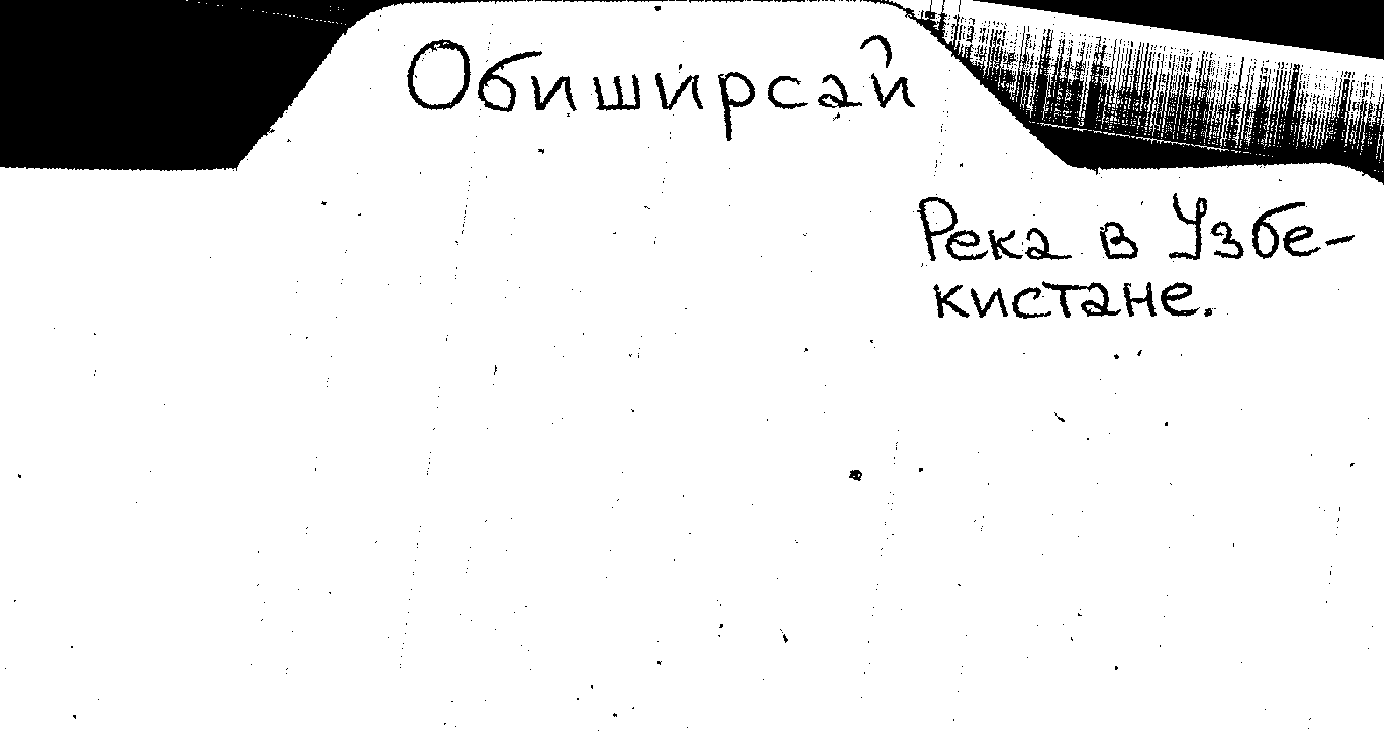 Обиширсай
Река в Узбе-
кистане.